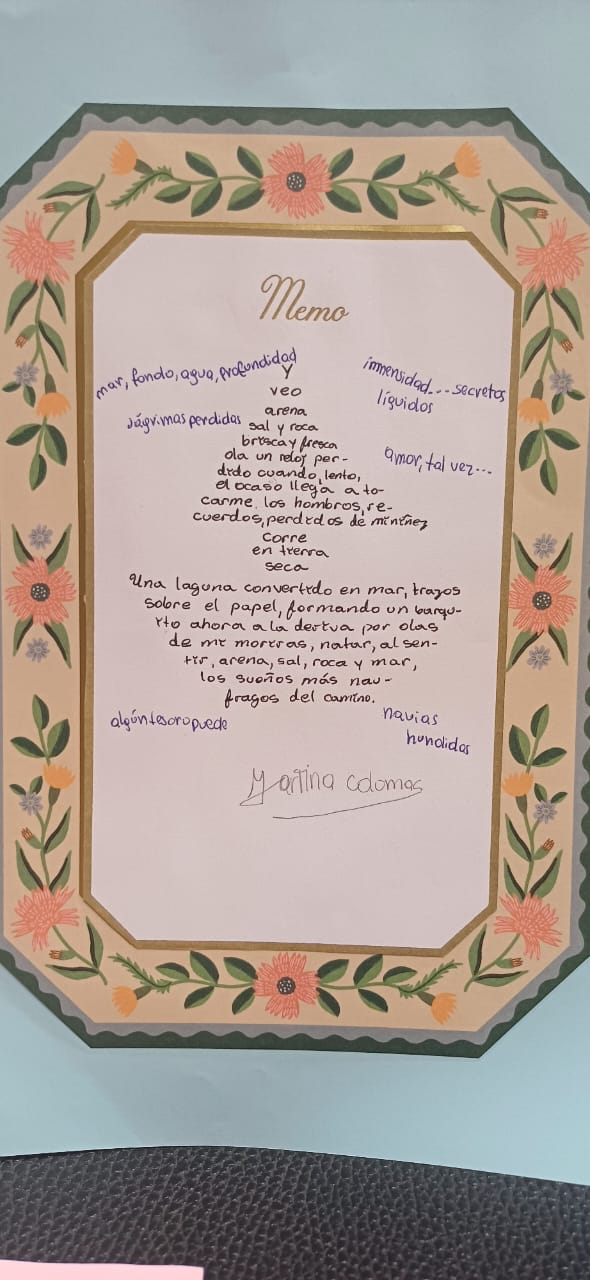 Memo
mar, fondo, agua, profundidad
inmensidad... secretos
líquidos
lágrimas perdidas
amor, tal vez...
Y
veo
arena
sal y roca
brisca y fresca
ola un reloj per-
dido cuando, lento,
el ocaso llega a to-
carme, los hombros, re-
cuerdos, perdidos de mi niñez
corre
en tierra
seca
Una laguna convertido en mar, trazos
sobre el papel, formando un barqu-
ito ahora a la deriva por olas
de mi
al sen-
tir, arena, sal, roca y mar,
los sueños más nau-
fragos del camino.
algún tesoro puede
navias
hundidas
Martina Colomas